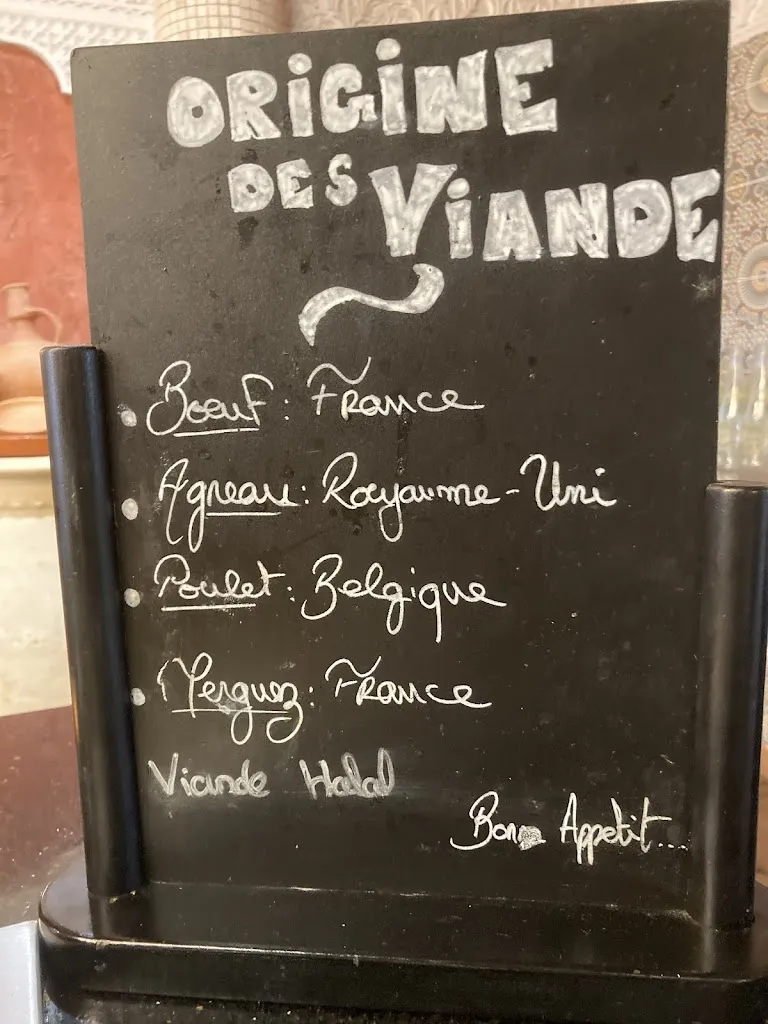 ORIGINE
DES VIANDE
Boeuf : France
Agneau : Royaume-Uni
Poulet : Belgique
Merguez : France
Viande Halal
Bon Appetit...